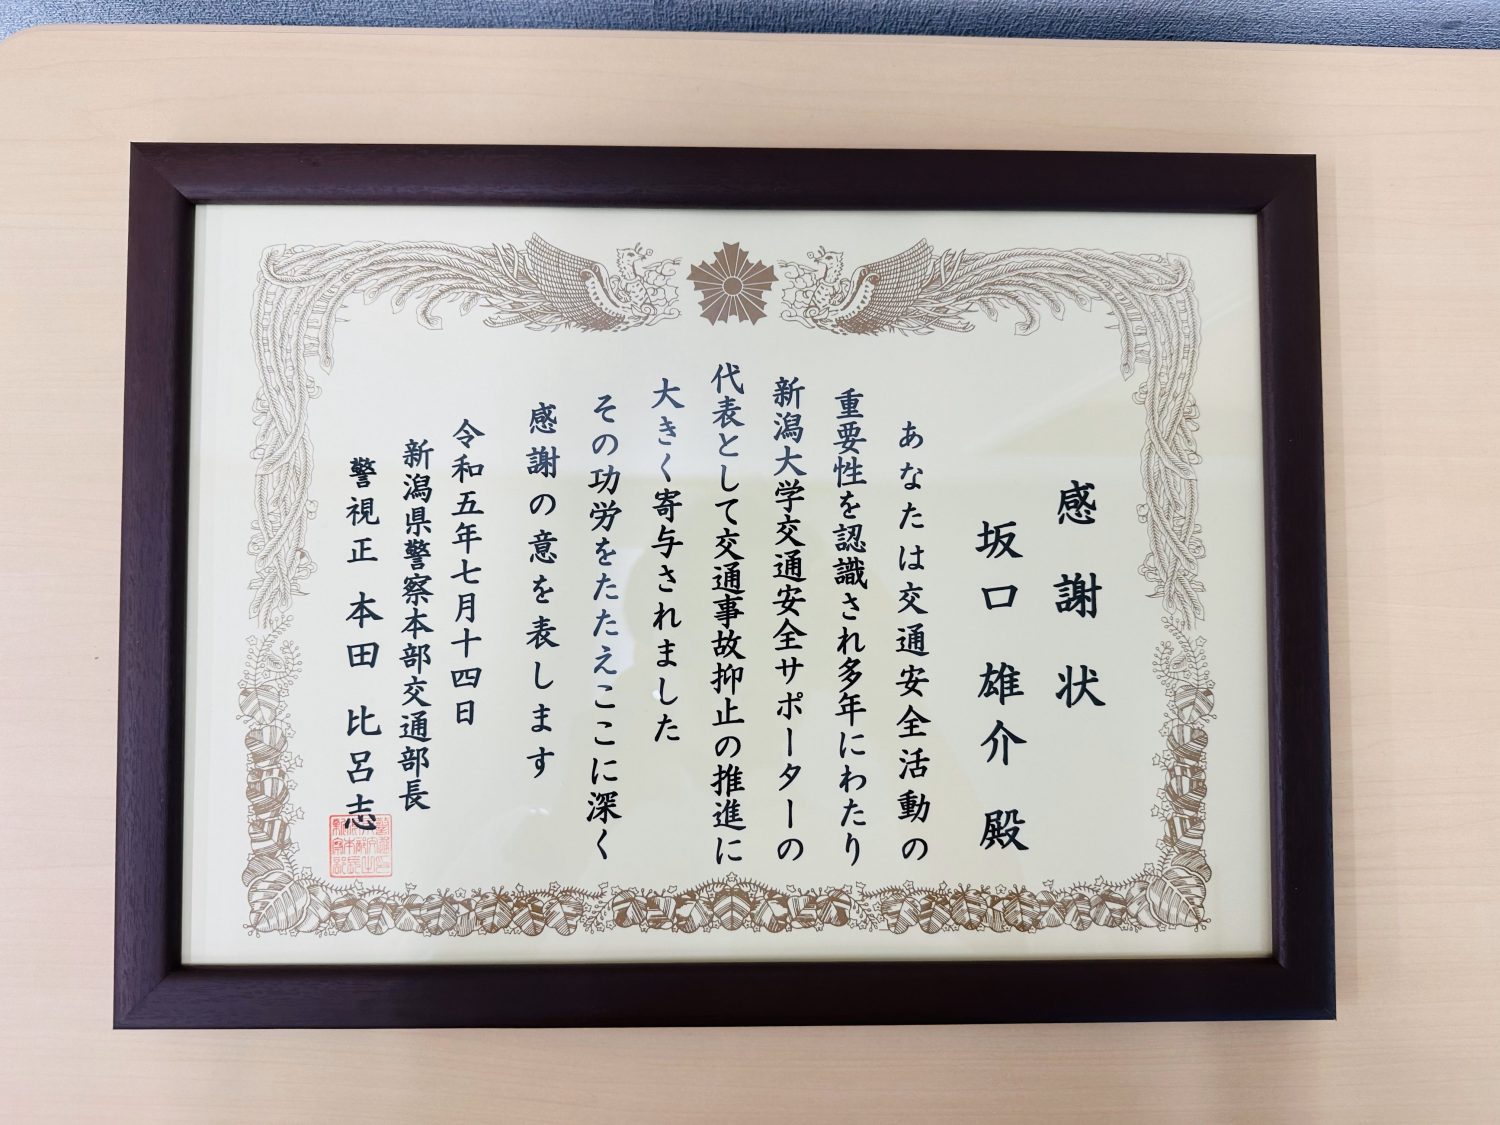 感謝状
坂口 雄介 殿
あなたは交通安全活動の
重要性を認識され多年にわたり
新潟大学交通安全サポーターの
代表として交通事故抑止の推進に
大きく寄与されました
その功労をたたえここに深く
感謝の意を表します
令和五年七月十四日
新潟県警察本部交通部長
警視正 本田 比呂志